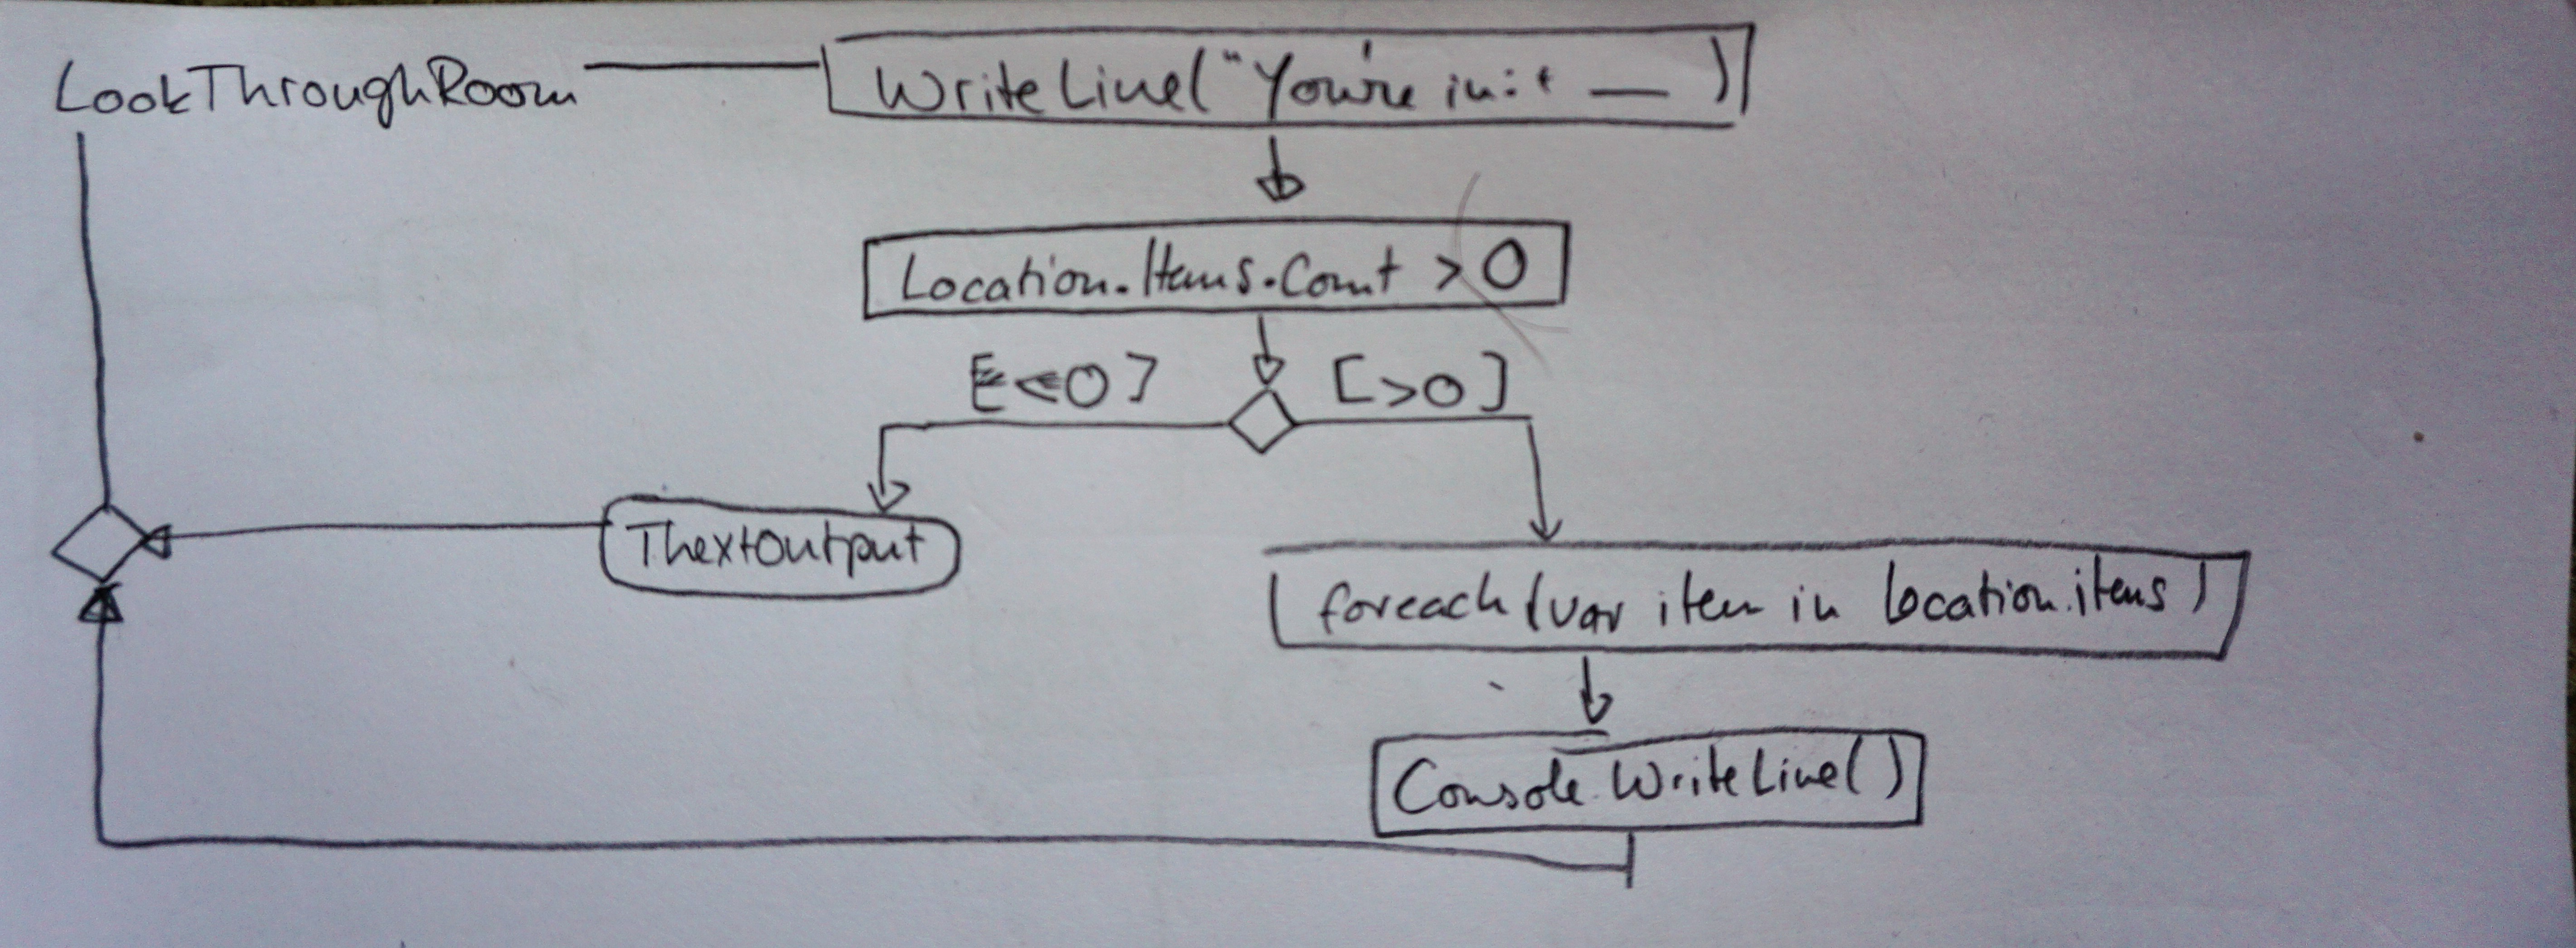 LookThroughRoom
WriteLine("You're in:" __ )
Location.Items.Count > 0
[<=0] [>0]
ThextOutput
foreach (var item in location.items)
Console.WriteLine()